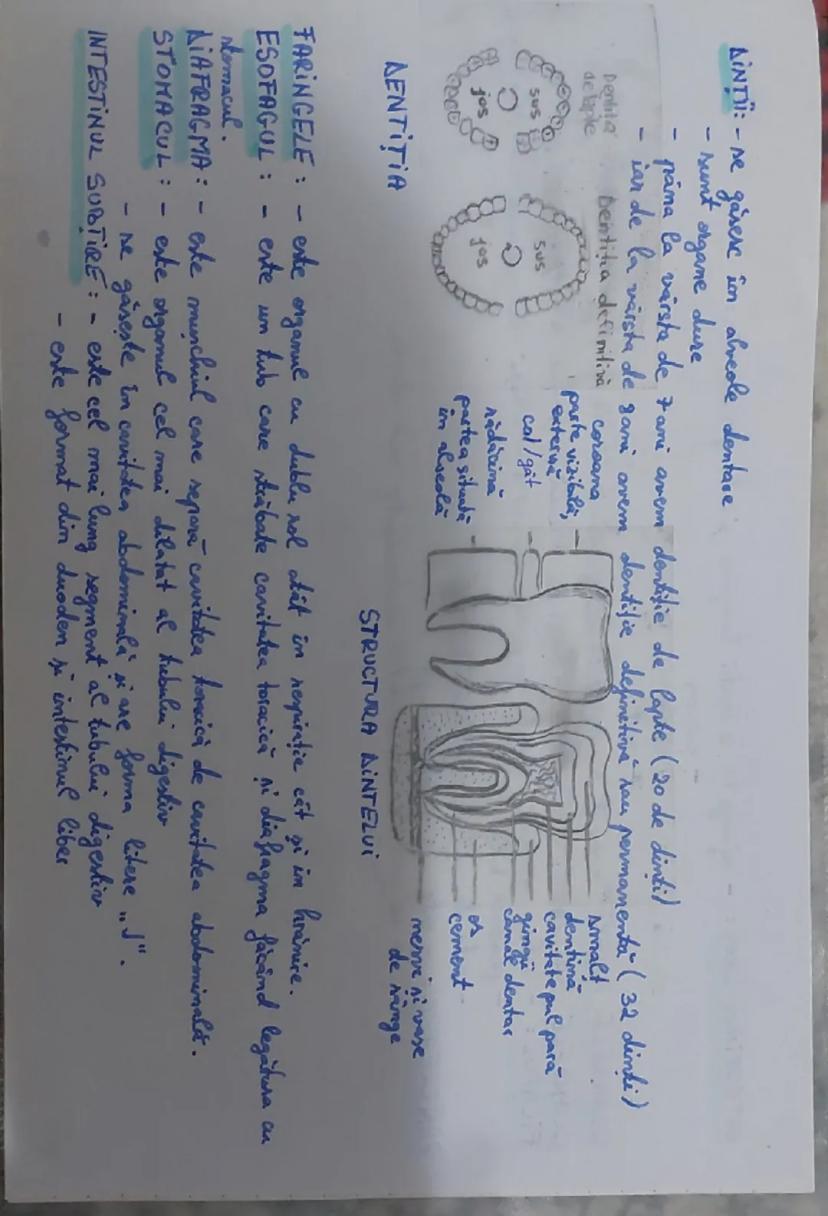 DINȚII: - se găsesc în alveole dentare
- sunt organe dure
- pâna la vârsta de 7 ani avem dentiție de lapte (20 de dinți)
- iar de la vârsta de 8 ani avem dentiție definitivă sau permanentă (32 dinți)
Dentiția
de lapte
Dentiția definitivă
sus
jos
sus
jos
DENTIȚIA
coroana
parte vizibilă,
externă
col/gât
rădăcină
partea situată
în alveolă
smalț
dentină
cavitate pulpară
gingii
canal dentar
os
cement
nervi și vase
de sânge
STRUCTURA DINTELUI
FARINGELE: - este organul cu dublu rol atât în respirație cât și în hrănire.
ESOFAGUL: - este un tub care străbate cavitatea toracică și diafragma făcând legătura cu
stomacul.
DIAFRAGMA: - este mușchiul care separă cavitatea toracică de cavitatea abdominală.
STOMACUL: - este organul cel mai dilatat al tubului digestiv
- se găsește în cavitatea abdominală și are forma litere „J".
INTESTINUL SUBȚIRE: - este cel mai lung segment al tubului digestiv
- este format din duoden și intestinul liber